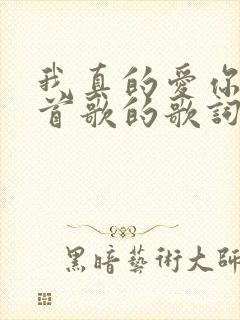 我真的愛你
首歌的歌詞
黑暗藝術大師